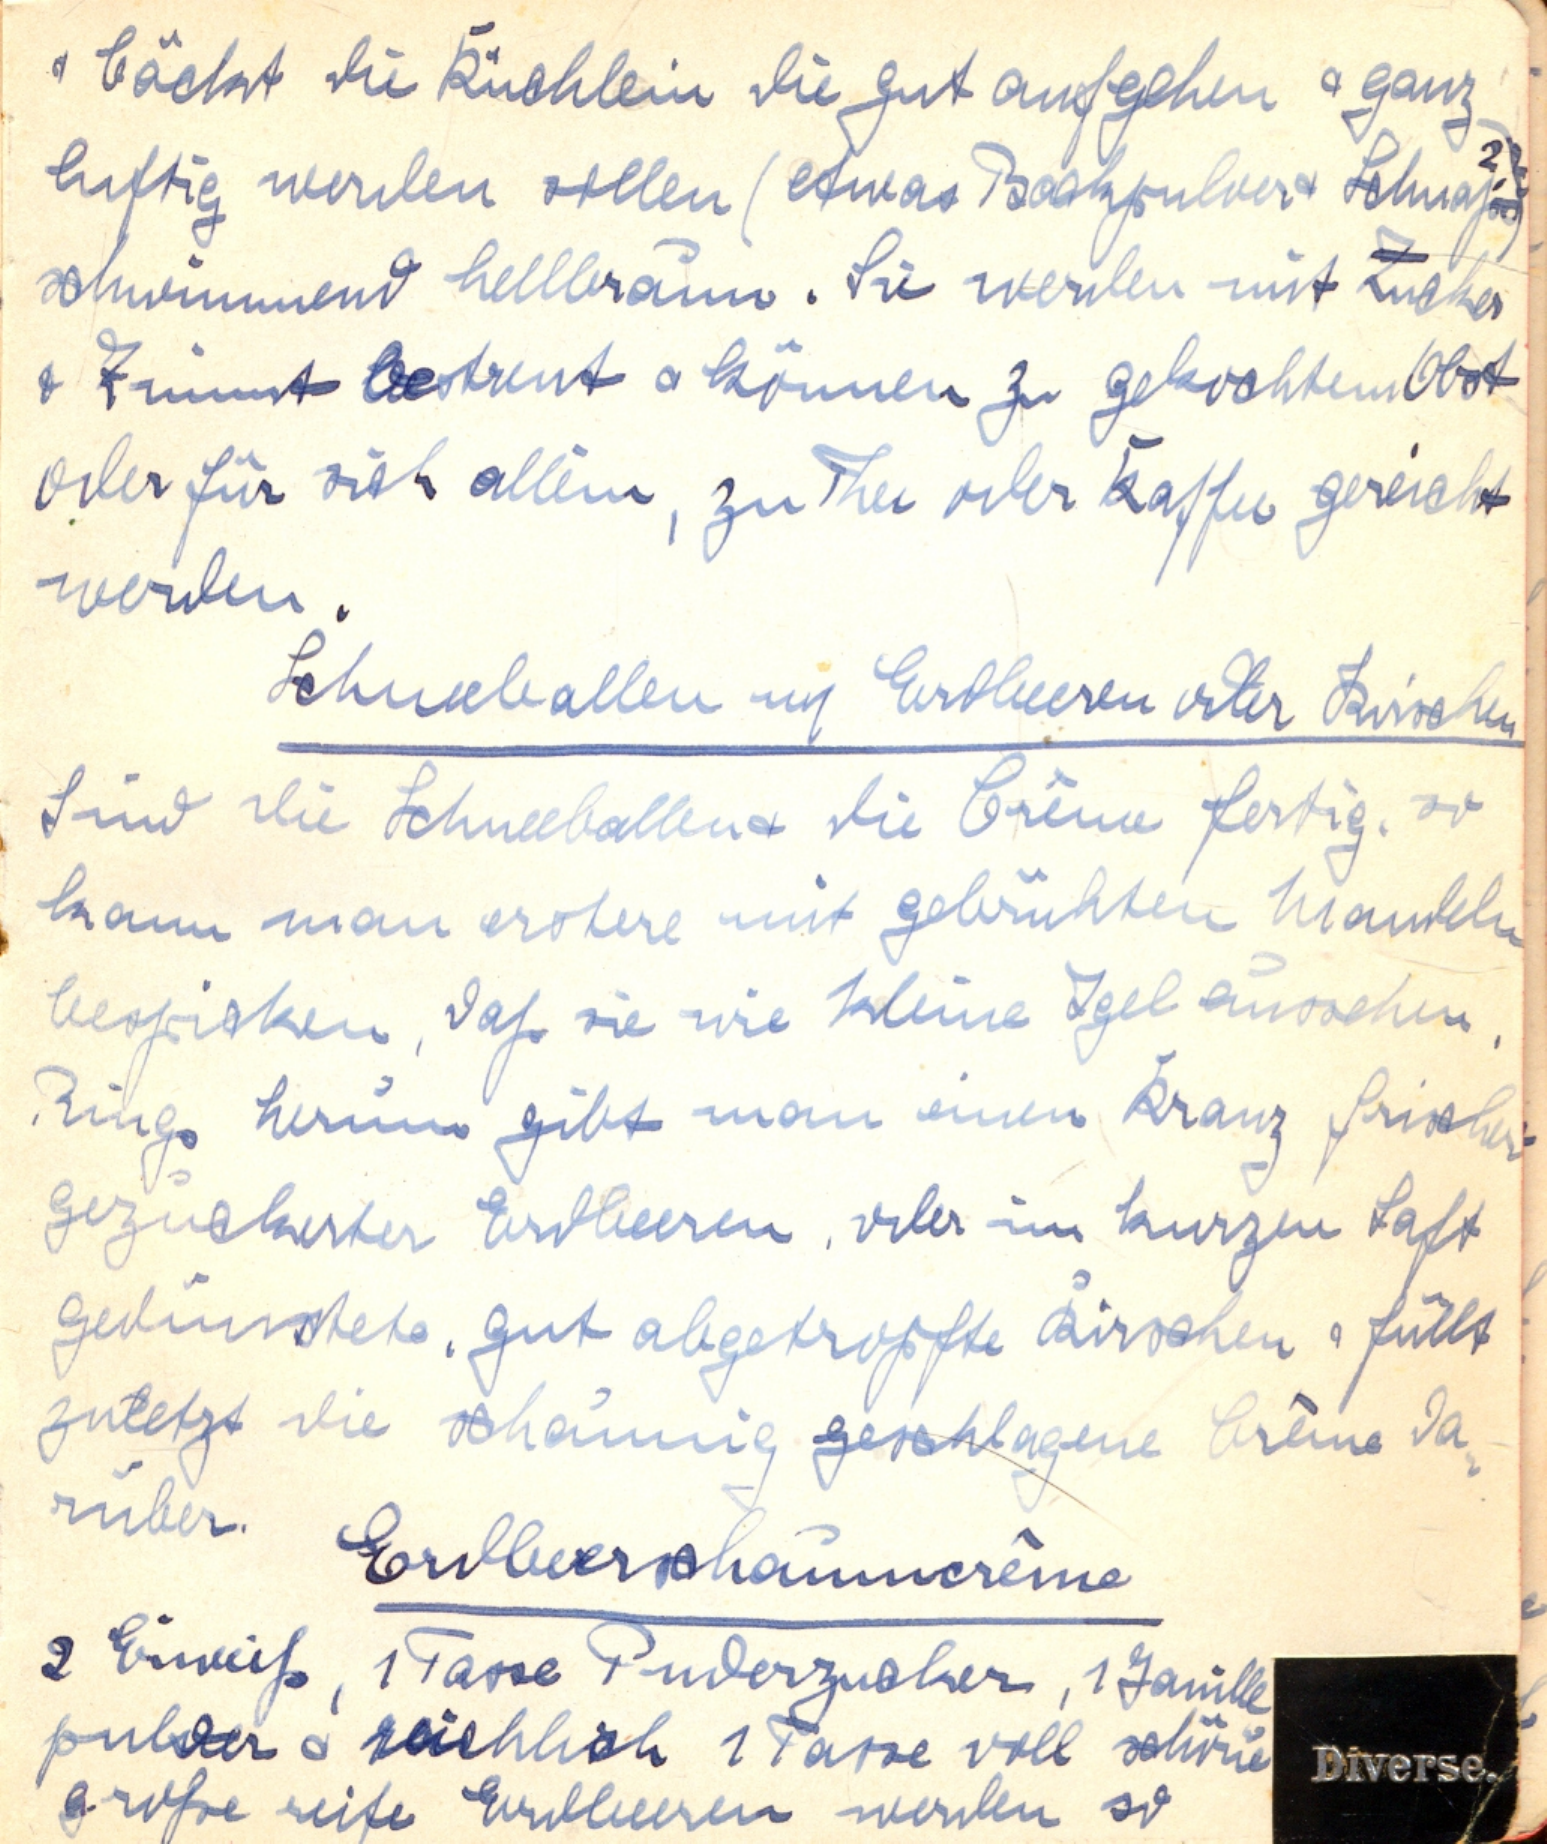 & bäckt die Küchlein die gut aufgehen & ganz
luftig werden sollen (etwas Backpulver & Schnaps)
schwimmend hellbraun. Sie werden mit Zucker
& Zimmt bestreut & können zu gekochtem Obst
oder für sich allein, zu Thee oder Kaffee gereicht
werden.
Schneeballen m/ Erdbeeren oder Kirschen
Sind die Schneeballen & die Crême fertig, so
kann man erstere mit gebrühten Mandeln
bespicken, daß sie wie kleine Igel aussehen,
Rings herum gibt man einen Kranz frischer
gezuckerter Erdbeeren, oder im kurzen Saft
gedünstete, gut abgetropfte Kirschen & füllt
zuletzt die schaumig geschlagene Crême da-
rüber.
Erdbeerschaumcrême
2 Eiweiß, 1 Tasse Puderzucker, 1 Vanille
pulver & reichlich 1 Tasse voll schöne
große reife Erdbeeren werden so
Diverse.